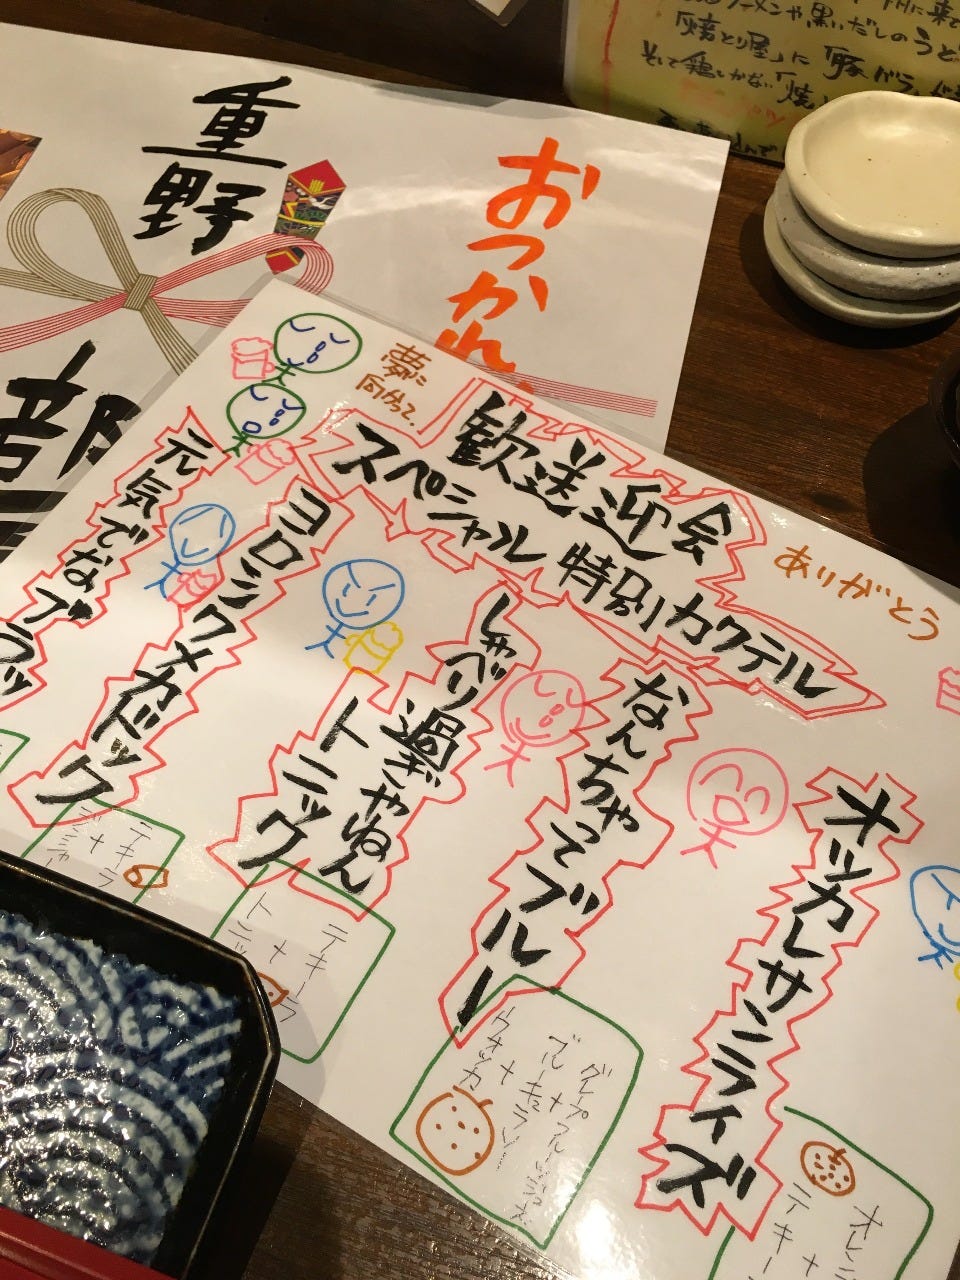 重野
おつかれ
部
夢に
向かって、
歓送迎会
スペシャル特別カクテル
ありがとう
オツカレサンライズ
なんちゃってブルー
しゃべり過ぎやねん
トニック
ヨロシクメカドック
元気でなブラッ
オレン
+
テキー
グレープフルーツジュース
+
ブルーキュラソー
+
ウオッカ
テキーラ
+
トニッ
テキーラ
+
ジンジャー
「焼とり屋」に「豚バラ」